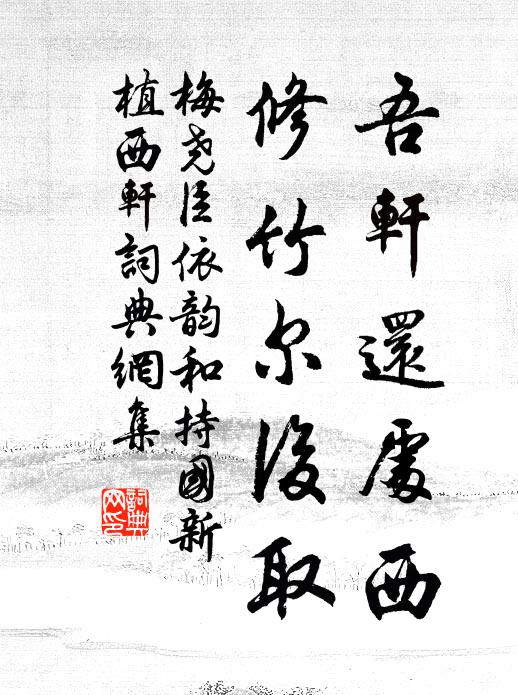 吾軒還處西
修竹尔後取
梅堯臣依韵和持國新
植西軒詞典網集
詞典
网印